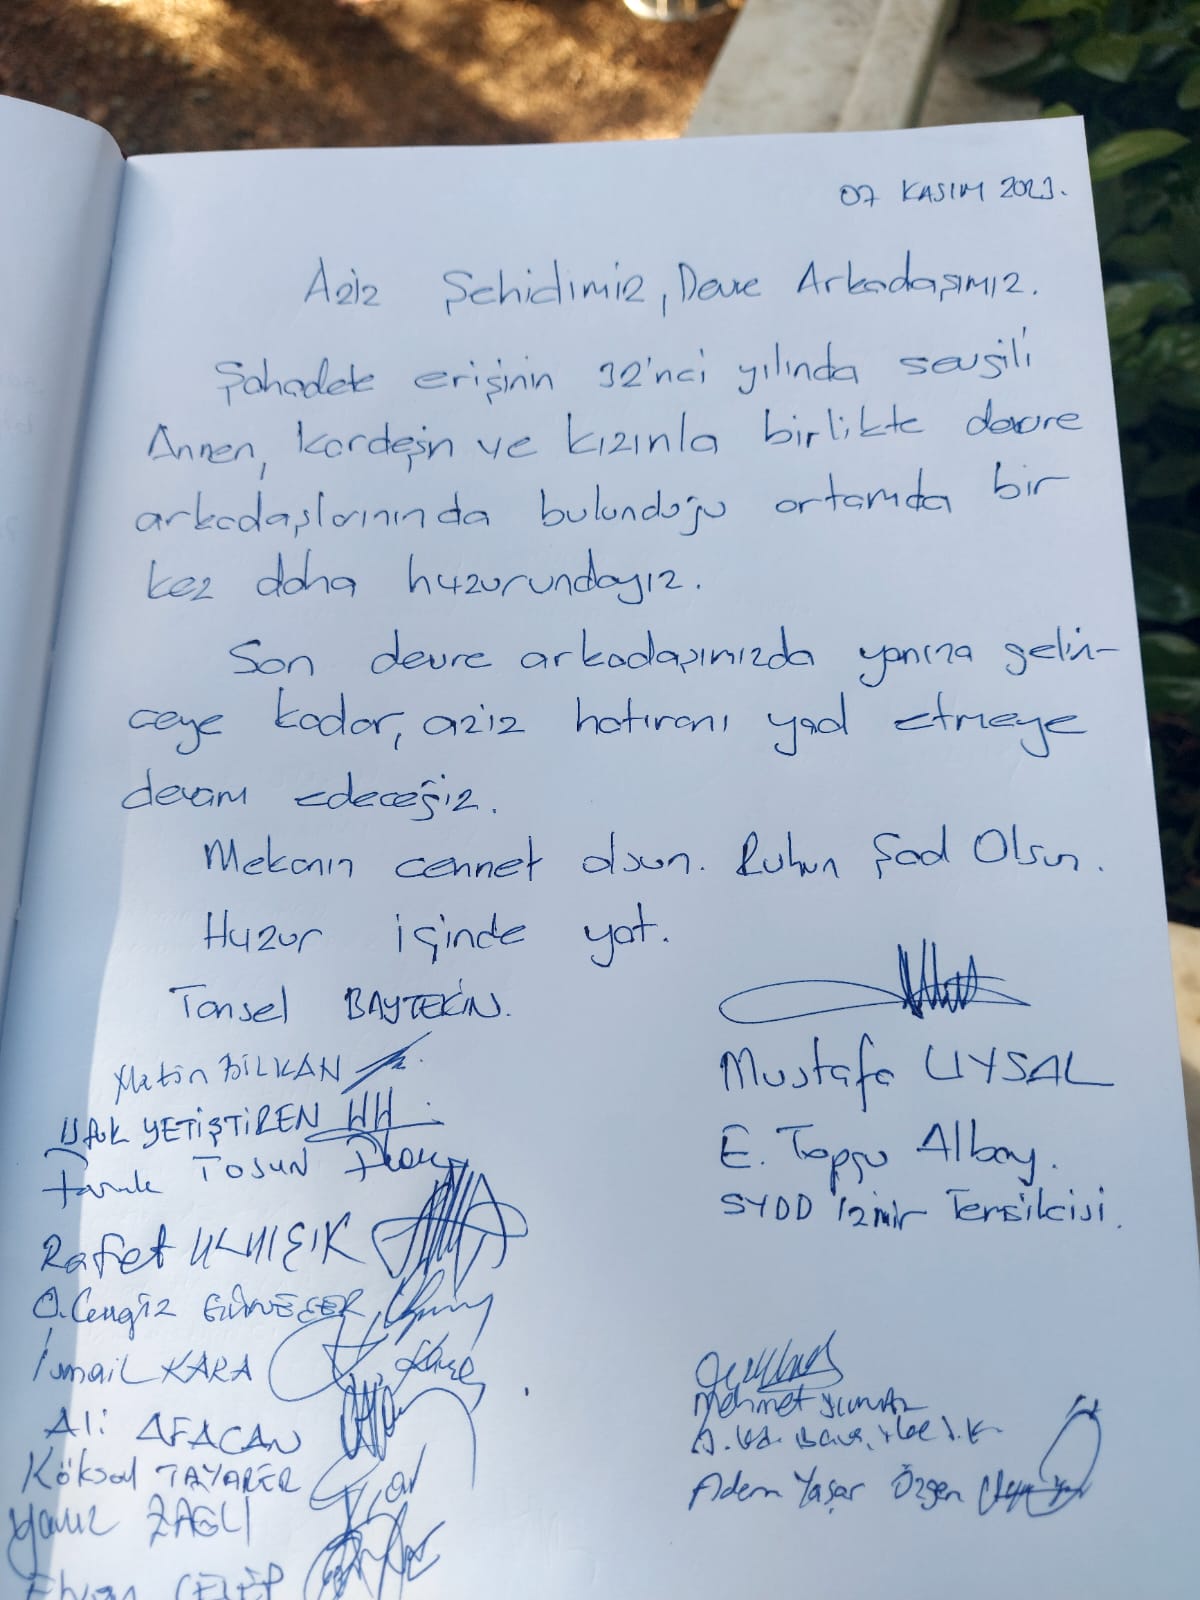 07 KASIM 2023.
Aziz Şehidimiz, Devre Arkadaşımız.
Şahadete erişinin 32'nci yılında sevgili
Annen, kardeşin ve kızınla birlikte devre
arkadaşlarınında bulunduğu ortamda bir
kez daha huzurundayız.
Son devre arkadaşımızda yanına gelin-
ceye kadar, aziz hatıranı yad etmeye
devam edeceğiz.
Mekanın cennet olsun. Ruhun Şad Olsun.
Huzur içinde yat.
Tansel BAYTEKİN.
Metin BİLKAN
Ufuk YETİŞTİREN
Faruk TOSUN
Rafet
O. Cengiz
İsmail KARA
Ali AFACAN
Köksal
Yavuz ZAGLI
Mustafa UYSAL
E. Topçu Albay.
SYDD İzmir Temsilcisi.
Mehmet
Adem Yaşar Özgen